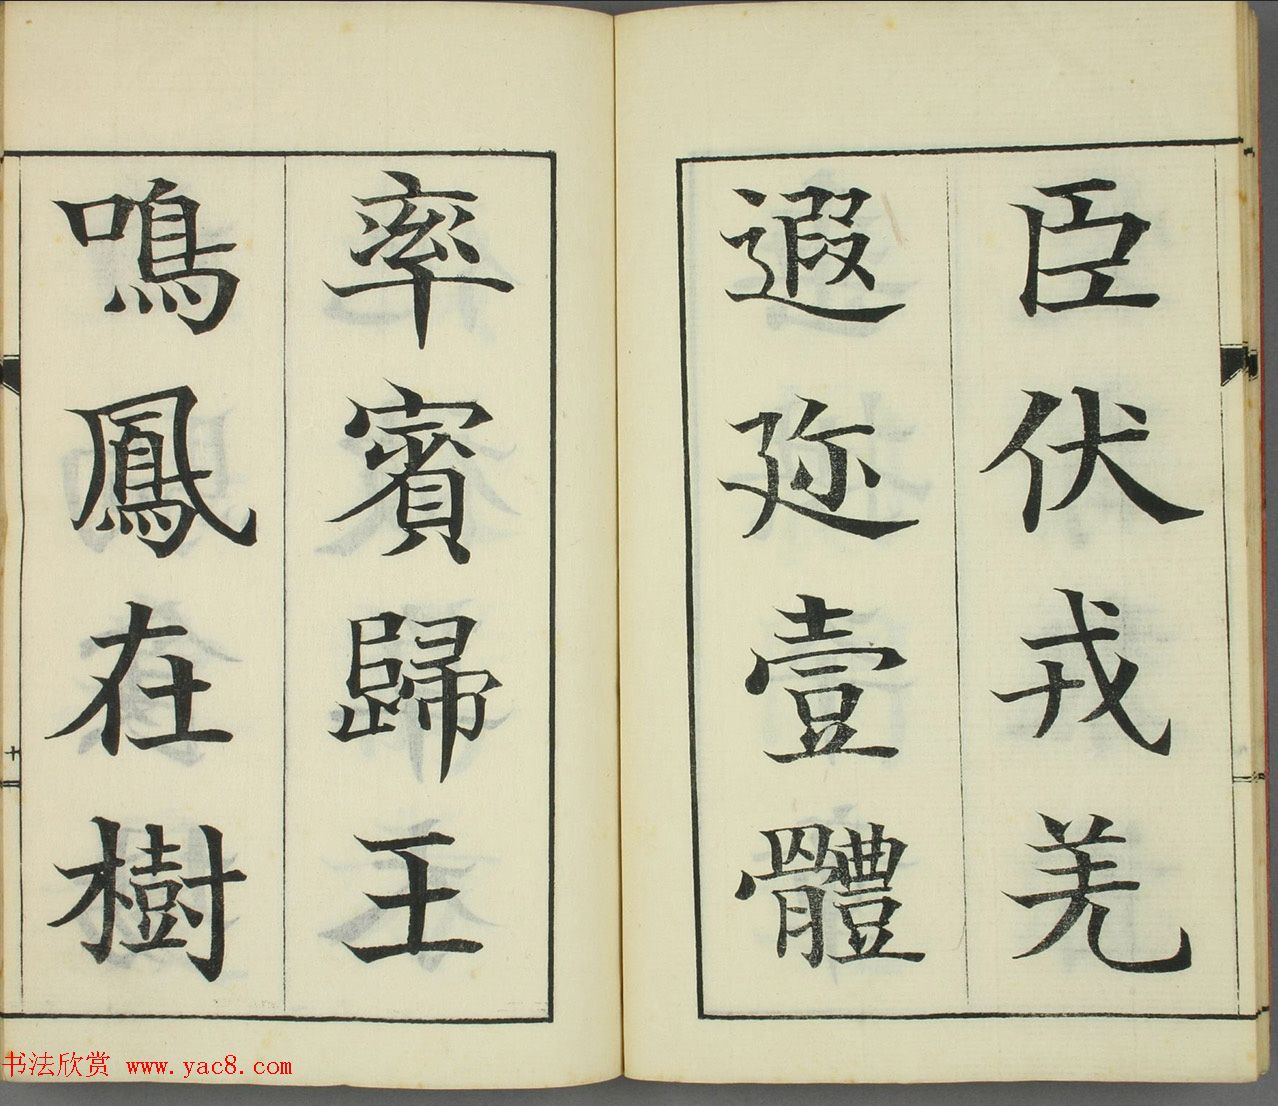 臣伏戎羌
遐迩壹體
率賓歸王
鳴鳳在樹
十
书法欣赏 www.yac8.com